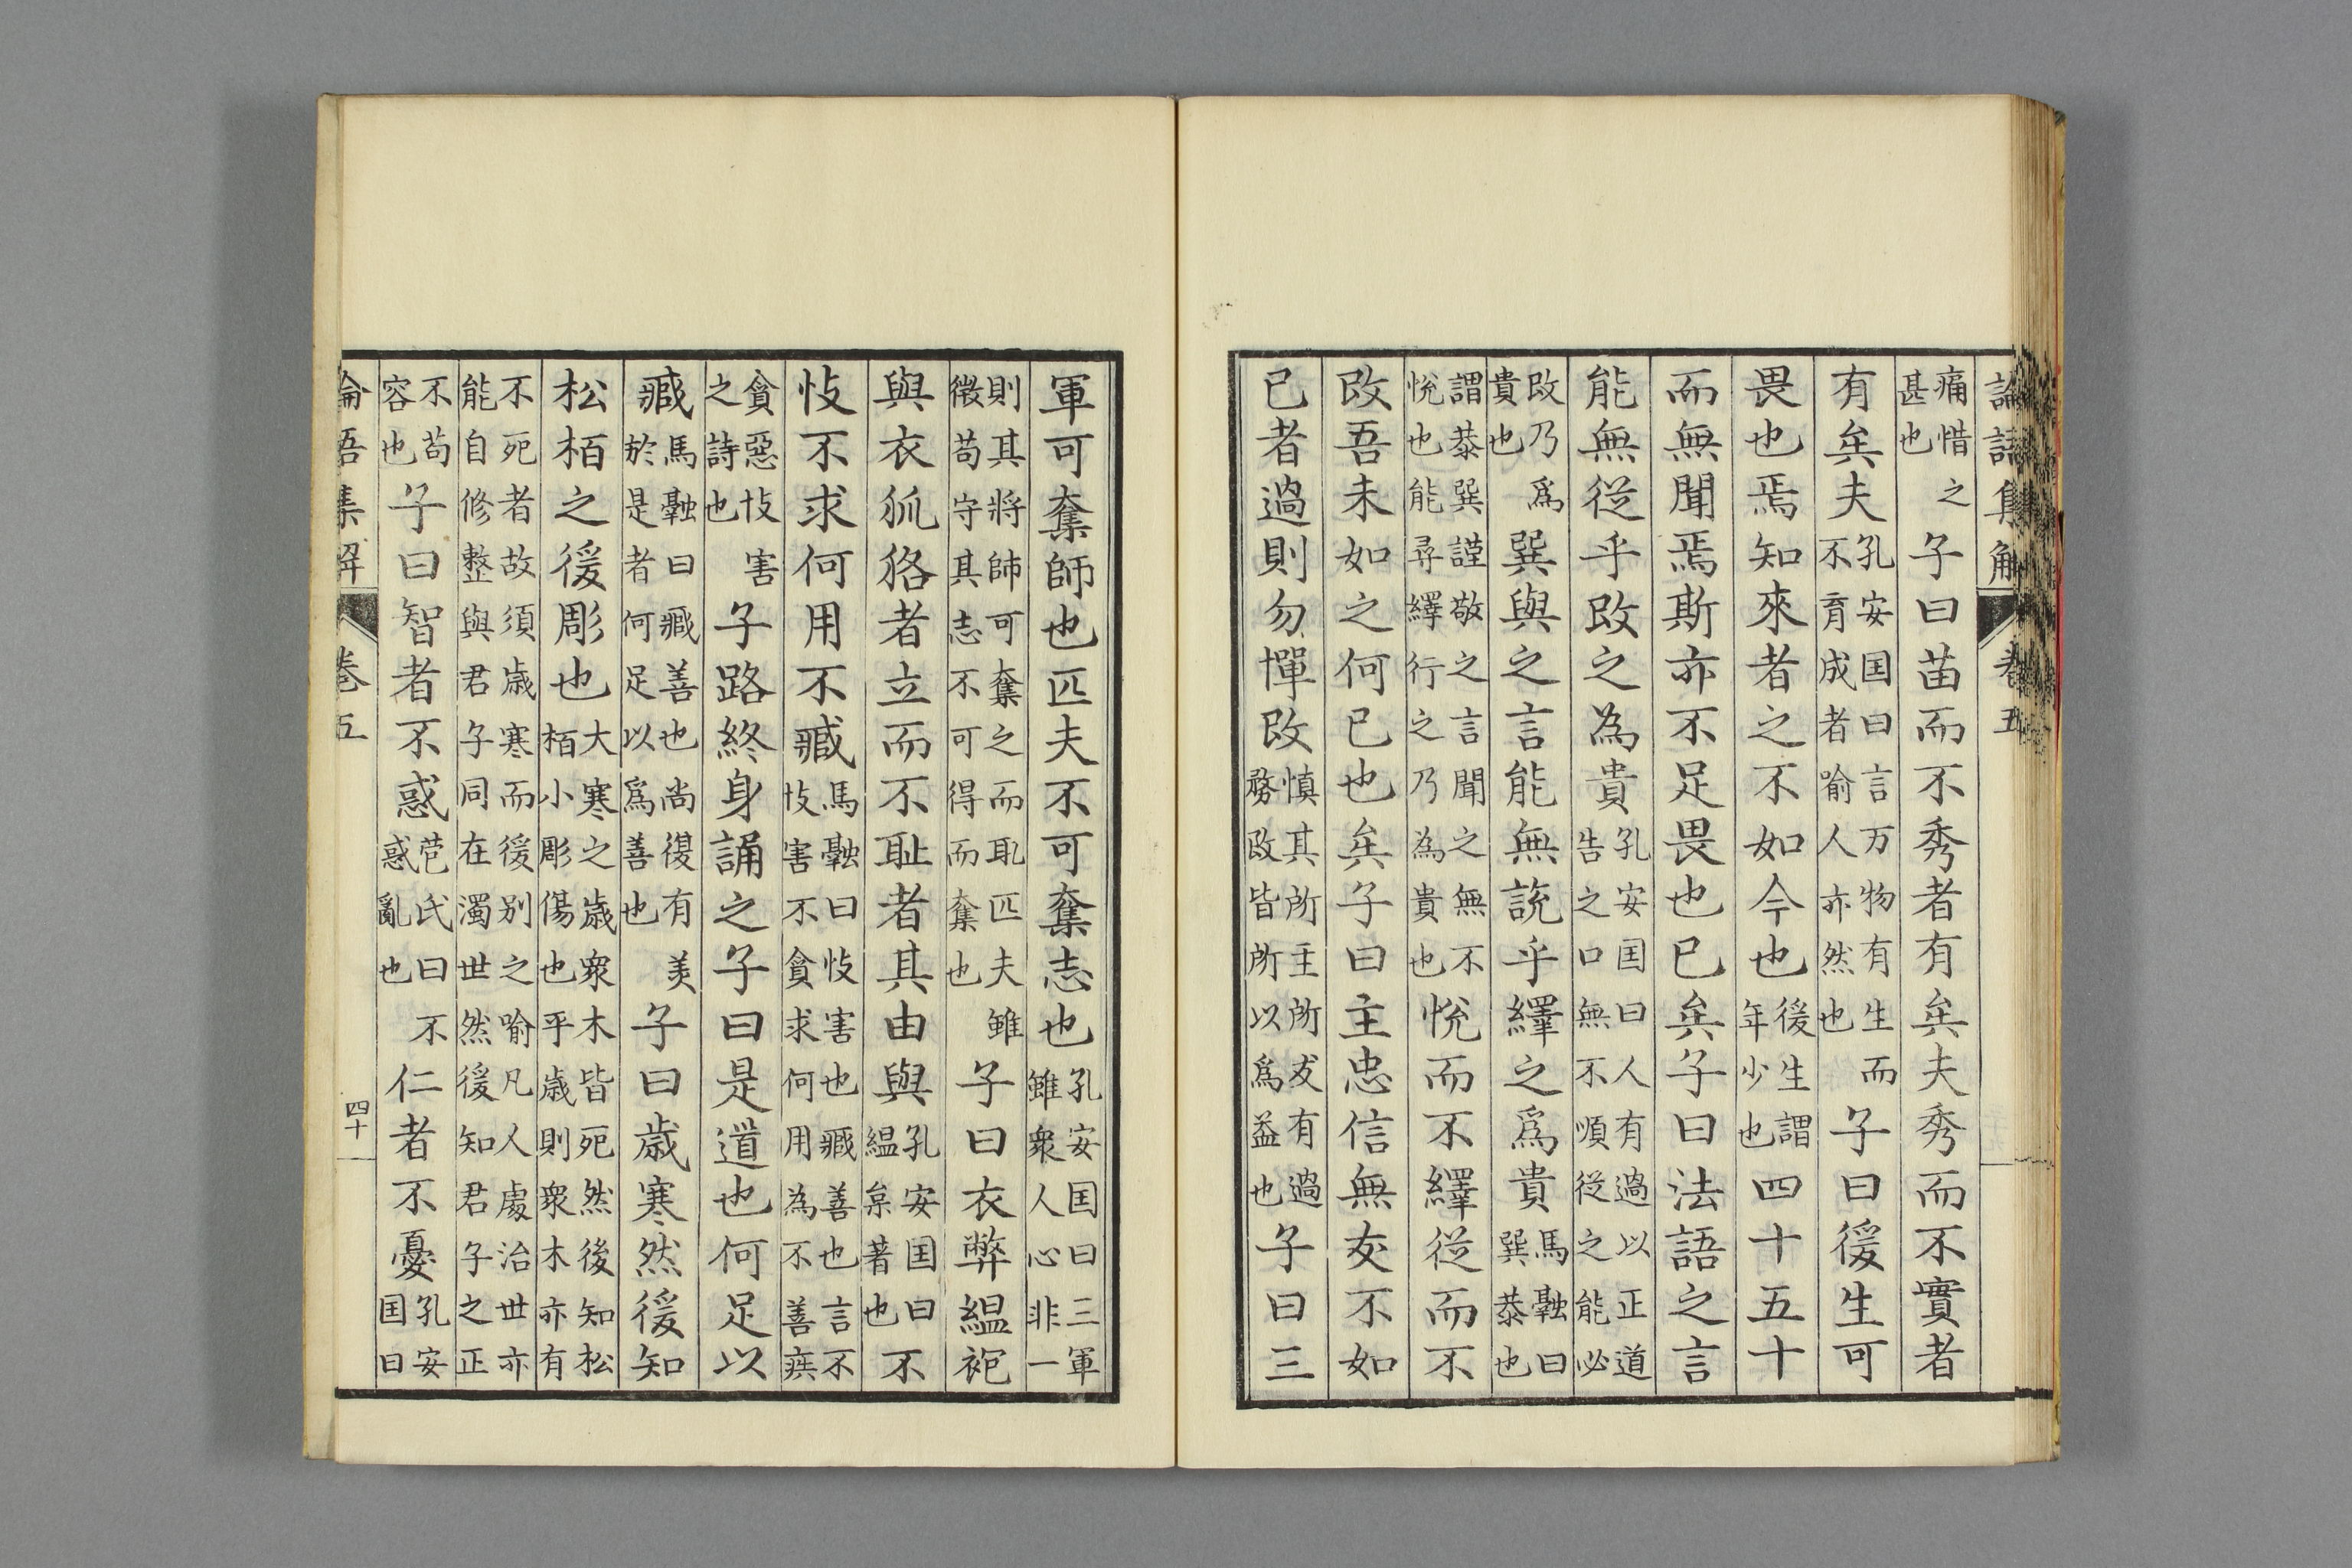 論語集解 卷五
痛惜之甚也子曰苗而不秀者有矣夫秀而不實者
有矣夫孔安国曰言万物有生而不育成者喻人亦然也子曰後生可
畏也焉知來者之不如今也後生謂年少也四十五十
而無聞焉斯亦不足畏也已矣子曰法語之言
能無從乎改之為貴孔安国曰人有過以正道告之口無不順從之能必
改乃爲貴也巽與之言能無說乎繹之爲貴馬融曰巽恭也
謂恭巽謹敬之言聞之無不悅也能尋繹行之乃為貴也悅而不繹從而不
改吾未如之何已也矣子曰主忠信無友不如
已者過則勿憚改慎其所主所友有過務改皆所以爲益也子曰三
軍可奪師也匹夫不可奪志也孔安国曰三軍雖衆人心非一
則其將師可奪之而取匹夫雖微苟守其志不可得而奪也子曰衣弊縕袍
與衣狐狢者立而不耻者其由與孔安国曰縕枲著也不
忮不求何用不臧馬融曰忮害也臧善也言不忮害不貪求何用為不善疾
貪惡忮害之詩也子路終身誦之子曰是道也何足以
臧馬融曰臧善也尚復有美於是者何足以爲善也子曰歳寒然後知
松栢之後彫也大寒之歳衆木皆死然後知松栢小彫傷也平歳則衆木亦有
不死者故須歳寒而後別之喻凡人處治世亦能自修整與君子同在濁世然後知君子之正
不苟容也子曰智者不惑苞氏曰不惑亂也仁者不憂孔安国曰
論語集解 卷五 四十一